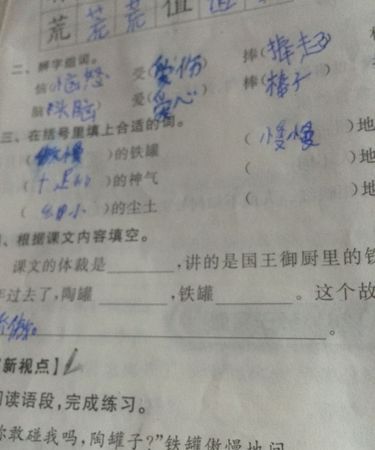 荒 荒 荒 值
二、辨字组词。
恼(恼怒) 受(受伤) 捧(捧起)
脑(头脑) 爱(爱心) 棒(棒子)
三、在括号里填上合适的词。
( )的铁罐 (慢慢)地
(十足的)的神气 ( )地
(细小)的尘土 ( )地
、根据课文内容填空。
课文的体裁是 ,讲的是国王御厨里的铁
年过去了,陶罐 ,铁罐 。这个故
。
新视点】
阅读语段,完成练习。
你敢碰我吗,陶罐子?”铁罐傲慢地问